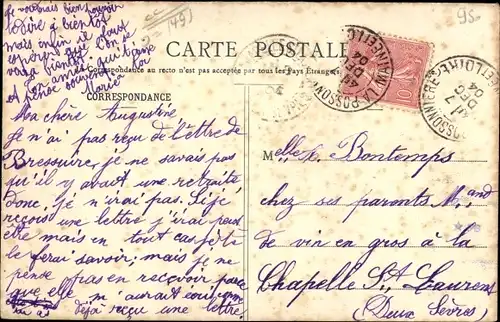 Je voudrais bien pouvoir
te dire à bientôt
mais enfin il faut
espérer que l'on se
verra bientôt
Ton amie qui t'aime
et pense souvent à toi
Marie
(49)
95-
CARTE POSTALE
Correspondance au recto n'est pas acceptée par tous les Pays Étrangers
CORRESPONDANCE
Ma chère Augustine
Je n'ai pas reçu de lettre de
Bressuire, je ne savais pas
qu'il y avait une retraite
Donc, je n'irai pas. Si je
reçois une lettre j'irai peut
être mais en tout cas je te
le ferai savoir; mais je ne
pense pas en recevoir, parce
que elle m'aurait
déjà reçu une lettre.
Melle A. Bontemps
chez ses parents Mand
de vin en gros à la
Chapelle St Laurent
(Deux Sèvres)
LA POSSONNIÈRE
DÉC
04
10